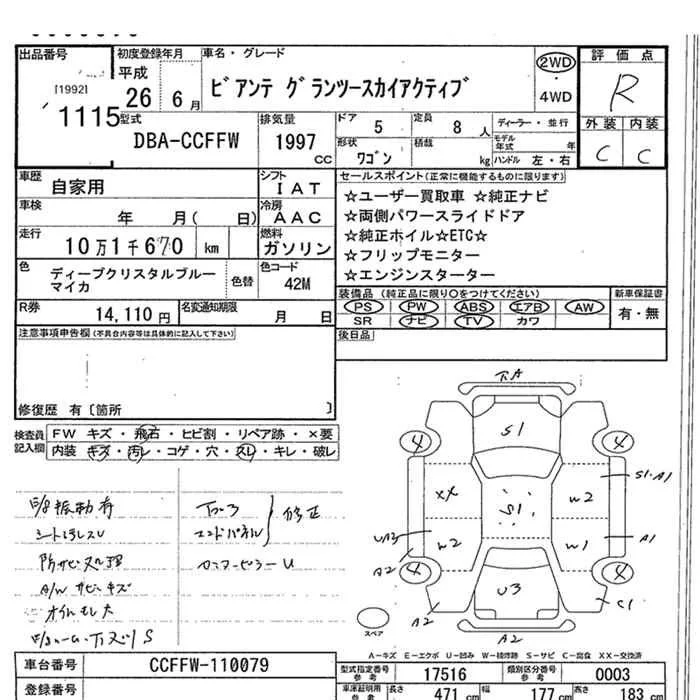 出品番号
[1992]
1115
初度登録年月
平成
26 6月
車名・グレード
ビアンテ グランツースカイアクティブ
2WD
4WD
評価点
R
外装 内装
C C
型式
DBA-CCFFW
排気量
1997
cc
ドア
5
定員
8 人
形状
ワゴン
積載
kg
ディーラー・並行
モデル年式 年
ハンドル 左・右
車歴
自家用
シフト
IAT
車検
年 月( 日)
冷房
AAC
走行
10万1千670 km
燃料
ガソリン
色
ディープクリスタルブルー
マイカ
色替
色コード
42M
R券
14,110 円
名変通知期限
月 日
セールスポイント(正常に機能するものに限ります)
☆ユーザー買取車 ☆純正ナビ
☆両側パワースライドドア
☆純正ホイル☆ETC☆
☆フリップモニター
☆エンジンスターター
装備品 (純正品に限り○をつけてください)
PS PW ABS エアB AW
SR ナビ TV カワ
新車保証書
有・無
後日品
注意事項申告欄(不具合内容等は具体的に記入して下さい)
修復歴 有〔箇所 〕
検査員
記入欄
FW キズ・飛石・ヒビ割・リペア跡・×要
内装 キズ・汚レ・コゲ・穴・スレ・キレ・破レ
シートよごれU
防サビ処理
A/W サビキズ
エンドパネル
修正
下A
S1
4
4
XX
S1
W2
S1.A1
A1
W2
W1
A2
4
U3
4
A2
A2
C1
スペア
A-キズ E-エクボ U-凹み W-補修跡 S-サビ C-腐食 XX-交換済
車台番号
CCFFW-110079
登録番号
型式指定番号
参考
17516
類別区分番号
参考
0003
車庫証明用
参考
長さ
471 cm
幅
177 cm
高さ
183 cm